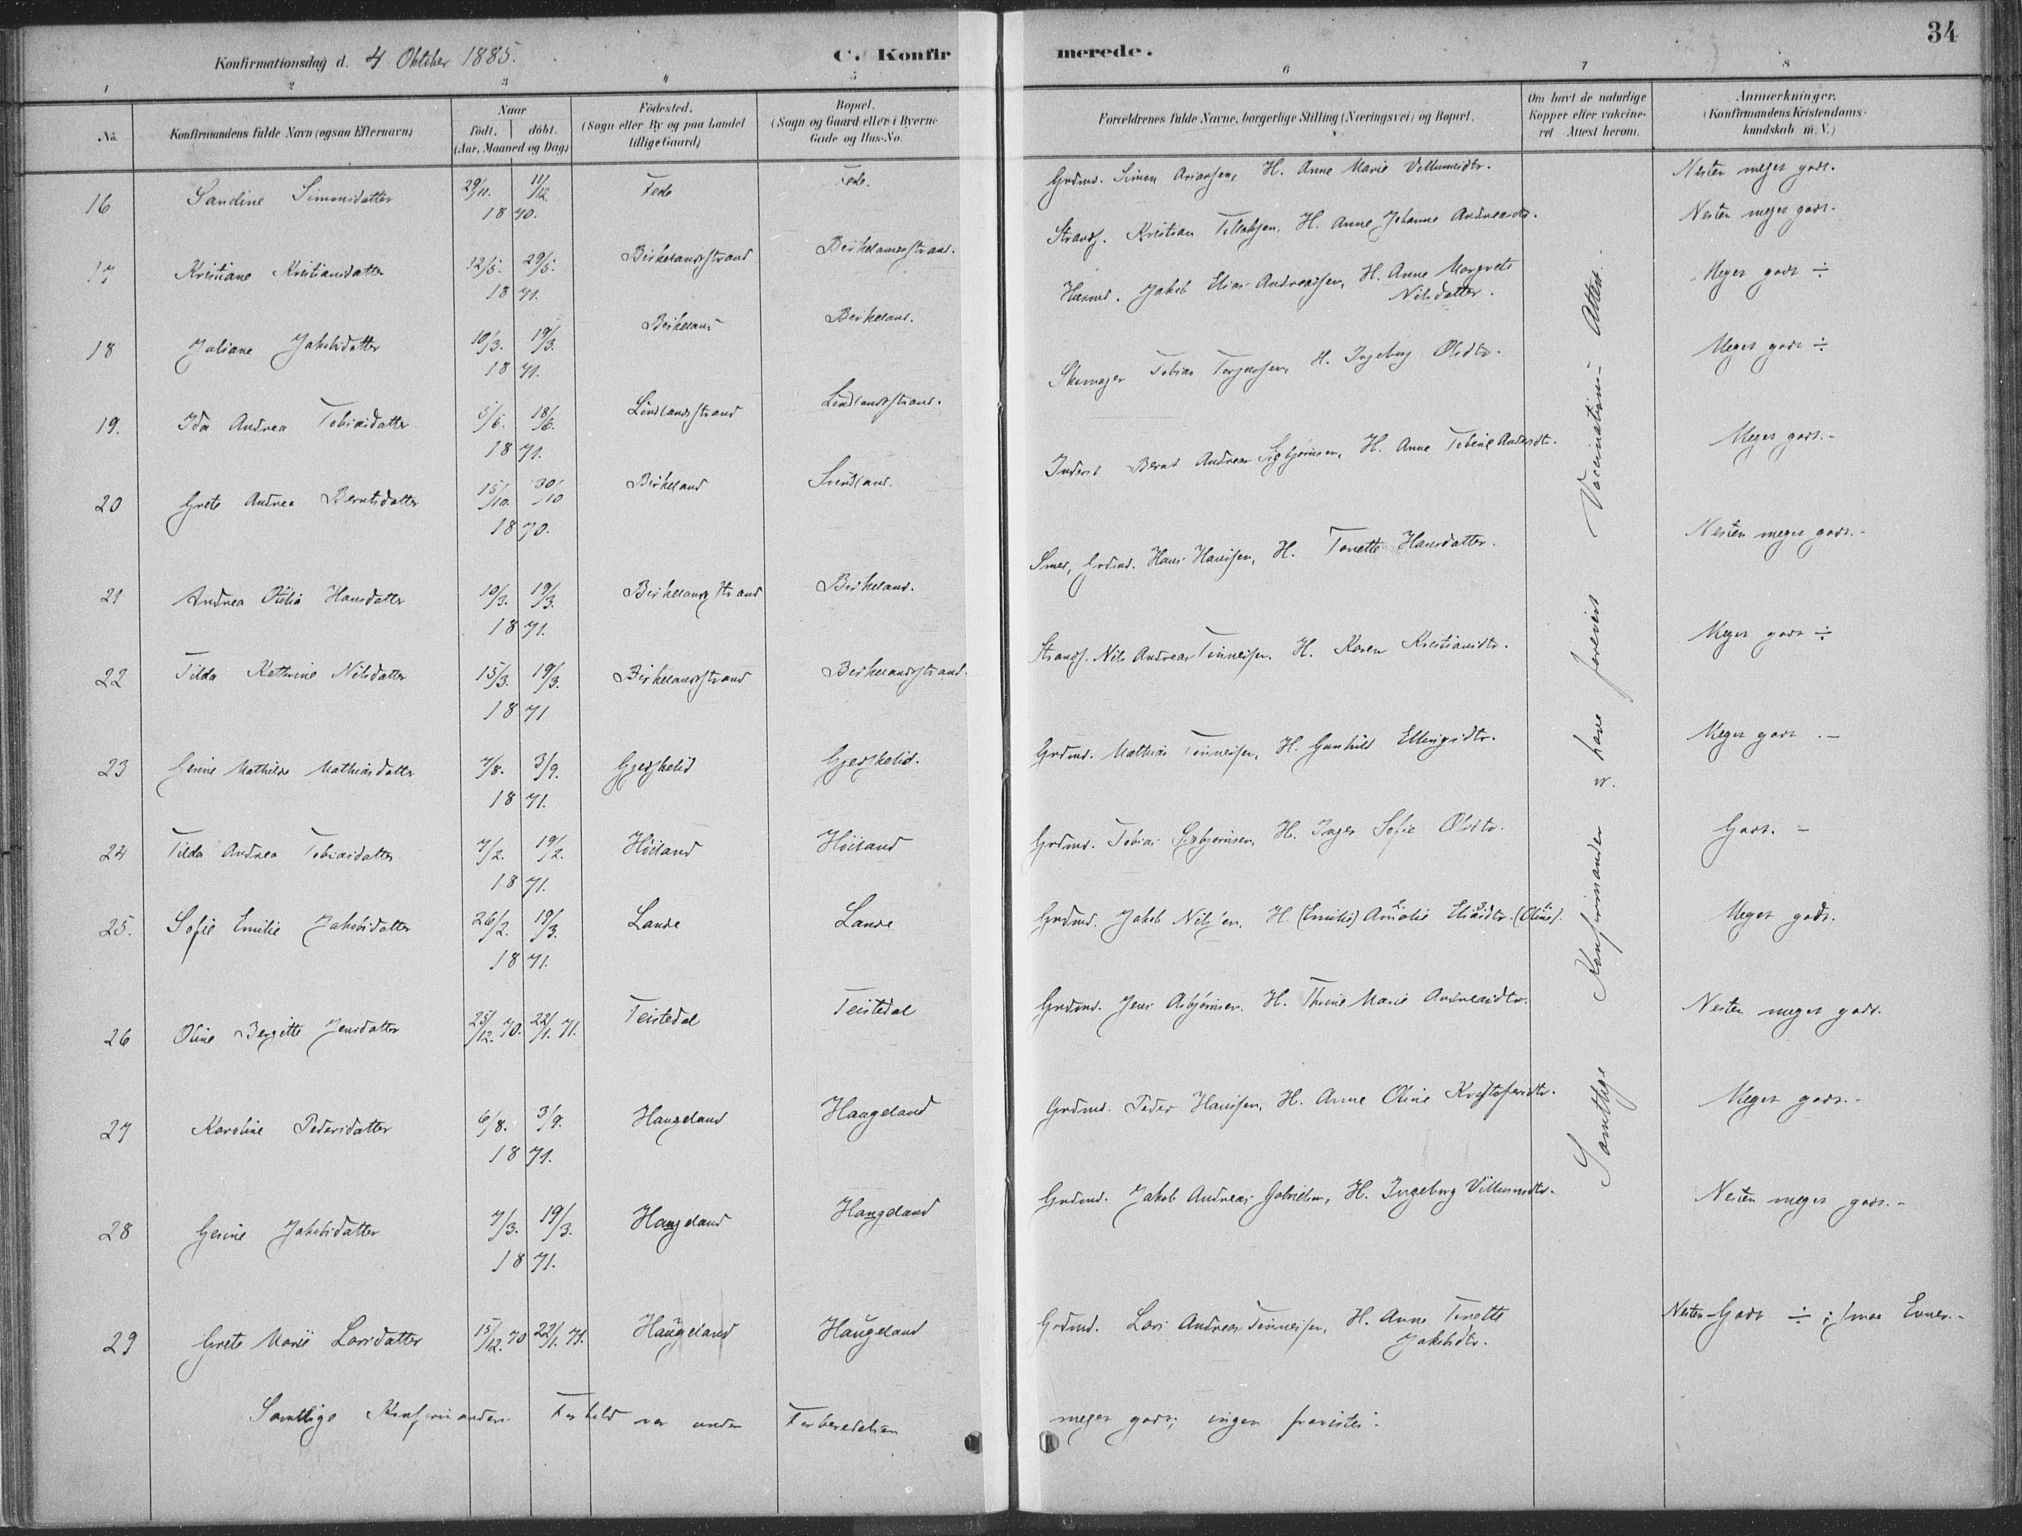 34
Konfirmationsdag d. 4 Oktober 1885. C. Konfirmerede.
1 2 3 4 5 6 7 8
No. Konfirmandens fulde Navn (ogsaa Efternavn) Naar födt. döbt. (Aar, Maaned og Dag) Födested. (Sogn eller By og paa Landet tillige Gaard) Bopæl. (Sogn og Gaard eller i Byerne Gade og Hus-No. Forældrenes fulde Navne, borgerlige Stilling (Næringsvei) og Bopæl. Om havt de naturlige Kopper eller vakcineret Attest herom. Anmærkninger. (Konfirmandens Kristendomskundskab m. V.)
16 Sandine Simonsdatter 29/11. 11/12 1870. Fede Fede. Grdmd. Simon H. Anne Marie Villumsdtr. Nesten meget godt.
17 Kristiane Kristiansdatter 12/5. 29/5. 1871. Birkelandsstrand Birkelandsstrand. Strands. Kristian Tollaksen, H. Anne Johanne Andreasdtr. Nesten meget godt.
18 Juliane Jakobsdatter 10/3. 19/3. 1871. Birkeland Birkeland. Husmd. Jakob Elias Andreassen, H. Anne Margrete Nilsdatter. Meget godt ÷
19. Ida Andrea Tobiasdatter 5/6. 18/6. 1871. Lindlandsstrand Lindlandsstrand. Skomager Tobias Terjusen, H. Ingeborg Olsdtr. Meget godt ÷
20 Grete Andrea Berntsdatter 15/10. 30/10 1870. Birkeland Svindland. Inderst Bernt Andreas Sigbjørnsen, H. Anne Tobine Andersdtr. Meget godt.-
21 Andrea Otilia Hansdatter 10/3. 19/3. 1871. Birkelandsstrand Birkeland. Smed, Grdmd. Hans Hansen, H. Tonette Hansdatter. Nesten meget godt.-
22 Tilda Kathrine Nilsdatter 15/3. 19/3. 1871 Birkelandsstrand Birkelandsstrand. Strands. Nils Andreas Tønnesen. H. Karen Kristiansdtr. Meget godt ÷
23 Gesine Mathilde Mathiasdatter 7/8. 3/9. 1871. Gjerskelid Gjerskelid. Grdmd. Mathias Tønnesen, H. Gunhild Ellingsdtr. Meget godt .-
24 Tilda Andrea Tobiasdatter 7/2. 19/2. 1871. Höiland Höiland Grdmd. Tobias Sigbjørnsen, H. Inger Sofie Olsdtr. Godt. -
25. Sofie Emilie Jakobsdatter 26/2. 19/3. 1871. Lande Lande Grdmd. Jakob Nilsen, H. (Emilie) Amalie Eliasdtr. (Oline). Meget godt.
26 Oline Bergitte Jensdatter 25/12. 70. 22/1. 71. Teistedal Teistedal Grdmd. Jens Asbjørnsen. H. Thrine Marie Andreasdtr. Nesten meget godt.
27 Karoline Pedersdatter 6/8. 3/9. 1871. Haugeland Haugeland Grdmd. Peder Hansen, H. Anne Oline Kristofersdtr. Meget godt.-
28 Gesine Jakobsdatter 7/3. 19/3. 1871. Haugeland Haugeland Grdmd. Jakob Andreas Gabrielsen, H. Ingeborg Villumsdtr. Nesten meget godt.-
29 Grete Marie Larsdatter 15/12. 70 22/1. 71. Haugeland Haugeland Grdmd. Lars Andreas Tønnesen, H. Anne Tonette Jakobsdtr. Nesten Godt ÷ ; smaa Evner.-
Samtlige Konfirmander have forevist Vaccinations-Attest.
Samtlige Konfirmanders Forhold var under Forberedelsen meget godt; ingen